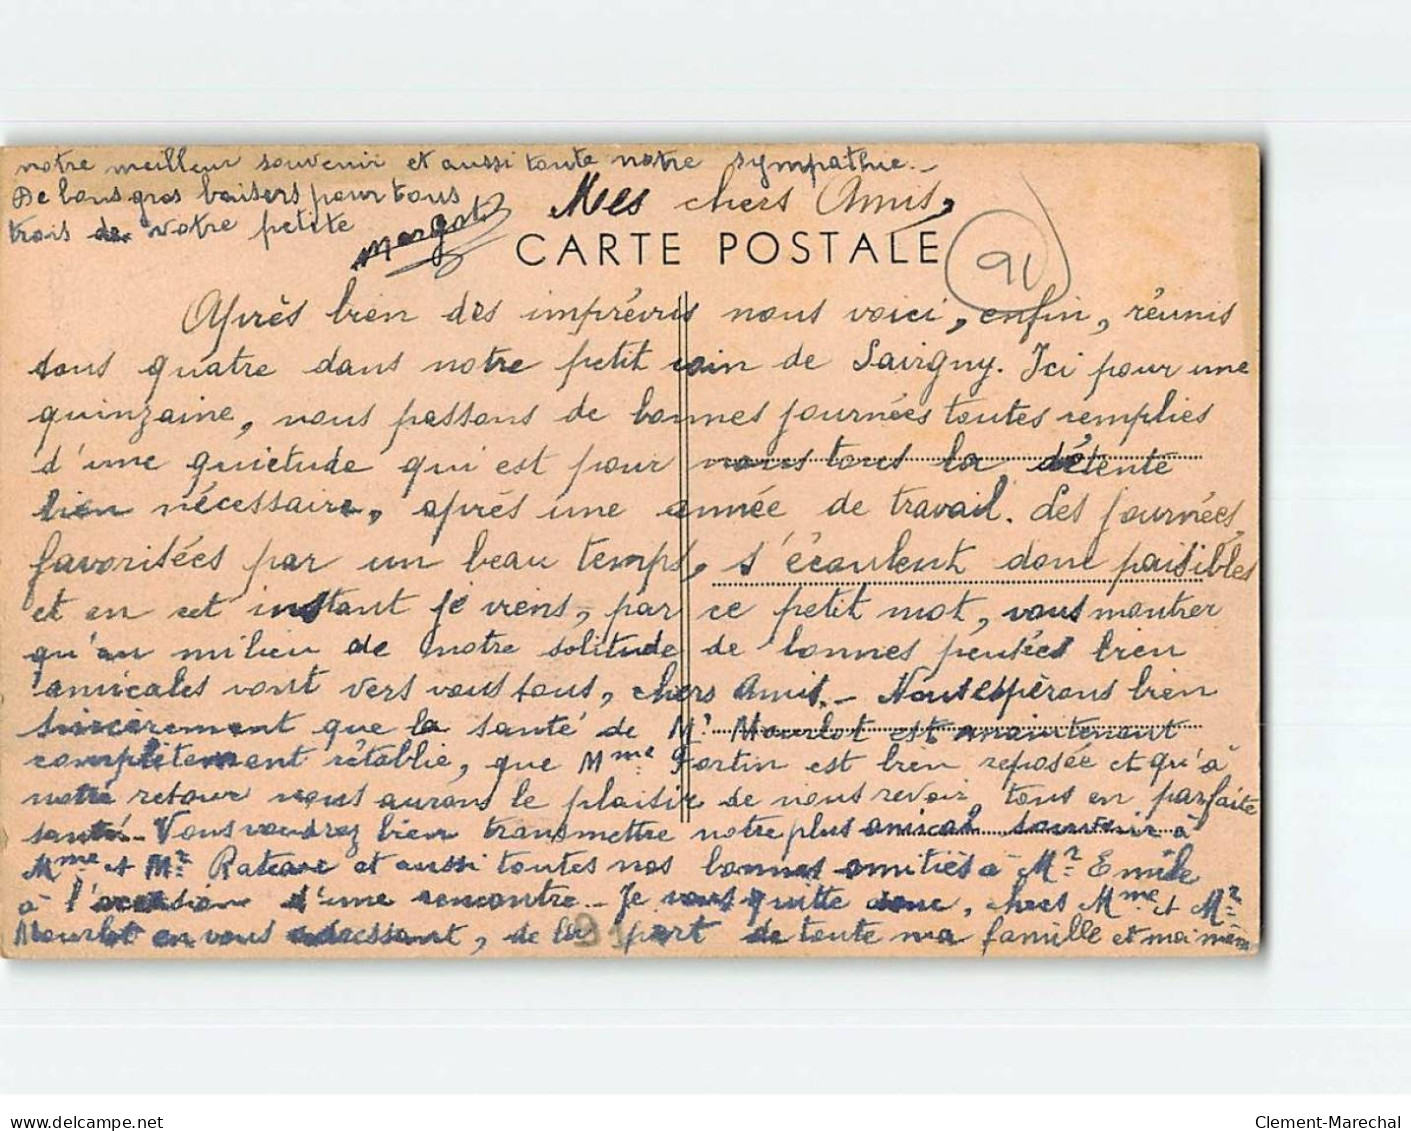 notre meilleur souvenir et aussi toute notre sympathie._
De bons gros baisers pour tous
trois de votre petite
Margot
Mes chers Amis,
CARTE POSTALE
91
Après bien des imprévis nous voici, enfin, réunis
tous quatre dans notre petit coin de Savigny. Ici pour une
quinzaine, nous passons de bonnes journées toutes remplies
d'une quiétude qui est pour nous tous la détente
bien nécessaire, après une année de travail. Les journées,
favorisées par un beau temps, s'écoulent donc paisibles
et en cet instant je viens, par ce petit mot, vous montrer
qu'au milieu de notre solitude de bonnes pensées bien
amicales vont vers vous tous, chers Amis._ Nous espérons bien
sincèrement que la santé de Mr Mourlot est maintenant
complètement rétablie, que Mme Fortin est bien reposée et qu'à
notre retour nous aurons le plaisir de nous revoir tous en parfaite
santé._ Vous voudrez bien transmettre notre plus amical souvenir à
Mme et Mr Rateave et aussi toutes nos bonnes amitiés à Mr Emile
à l'occasion d'une rencontre._ Je vous quitte donc, chers Mme et Mr
Mourlot en vous adressant, de la part de toute ma famille et moi même
91
Clement-Marechal